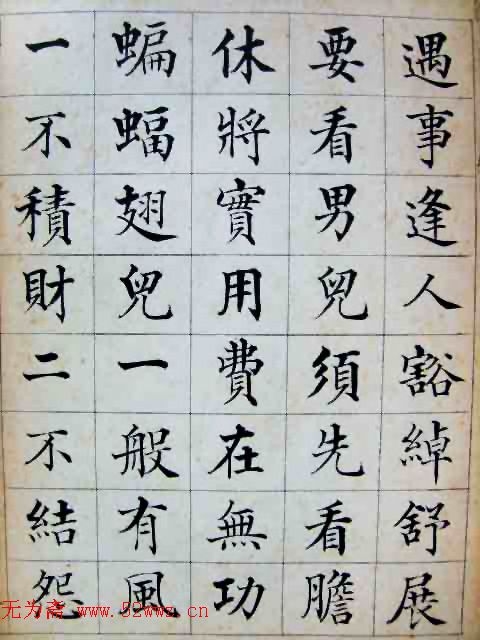 遇事逢人豁綽舒展
要看男兒須先看膽
休將實用費在無功
蝙蝠翅兒一般有風
一不積財二不結怨
无为斋 www.52wwz.cn